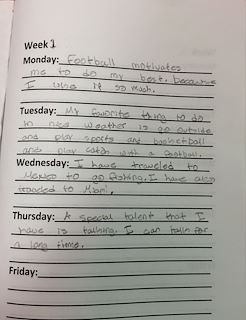 Week 1
Monday: Football motivates
me to do my best, because
I love it so much.
Tuesday: My favorite thing to do
in nice weather is go outside
and play sports and basketball
and play catch with a football.
Wednesday: I have traveled to
Mexico to go fishing. I have also
traveled to Miami.
Thursday: A special talent that I
have is talking. I can talk for
a long time.
Friday: